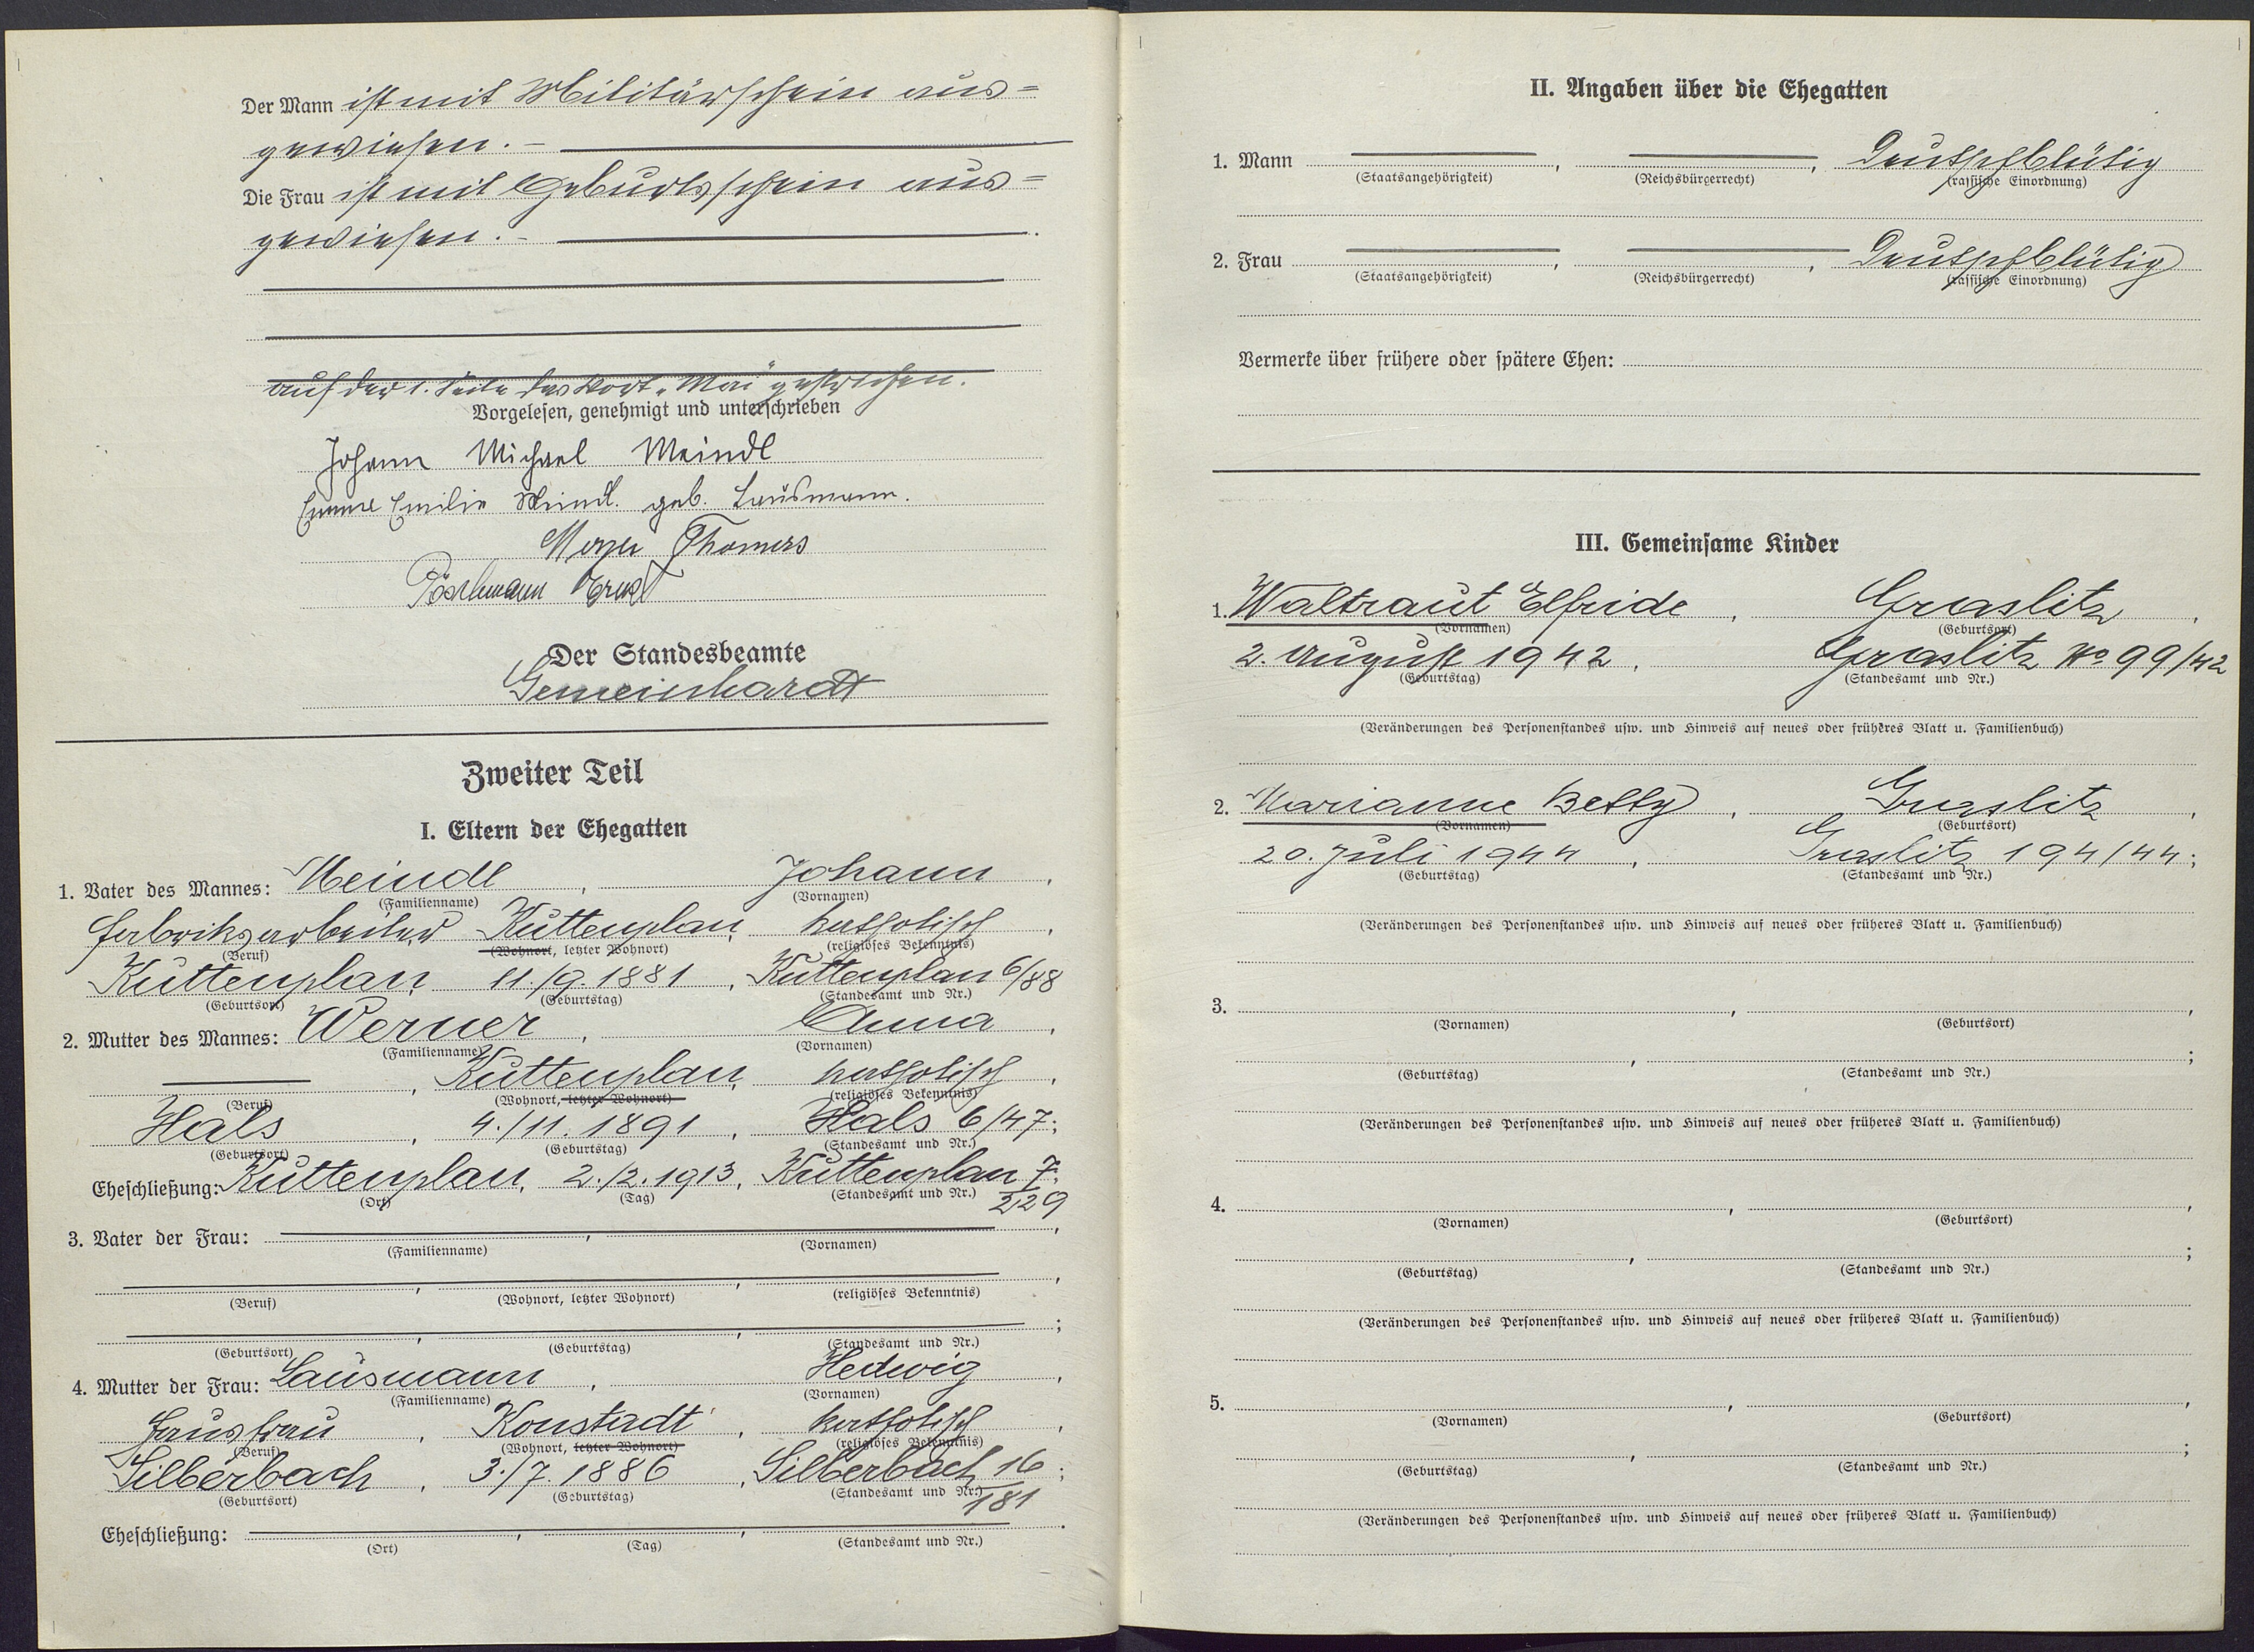 Der Mann ist mit Militärschein aus=
gewiesen. –
Die Frau ist mit Geburtsschein aus=
gewiesen. –
auf der 1. Seite das Wort „Mai" gestrichen.
Vorgelesen, genehmigt und unterschrieben
Johann Michael Meindl
Emilie Meindl. geb. Lausmann.
Thomas
Pöschmann Ernst
Der Standesbeamte
Gemeinhardt
Zweiter Teil
I. Eltern der Ehegatten
1. Vater des Mannes: Meindl, Johann,
(Familienname) (Vornamen)
Fabriksarbeiter Kuttenplan, katholisch,
(Beruf) (Wohnort, letzter Wohnort) (religiöses Bekenntnis)
Kuttenplan, 11./9. 1881, Kuttenplan 6/88
(Geburtsort) (Geburtstag) (Standesamt und Nr.)
2. Mutter des Mannes: Werner, Anna,
(Familienname) (Vornamen)
, Kuttenplan, katholisch,
(Beruf) (Wohnort, letzter Wohnort) (religiöses Bekenntnis)
Hals, 4./11. 1891, Hals 6/47;
(Geburtsort) (Geburtstag) (Standesamt und Nr.)
Eheschließung: Kuttenplan, 2./2. 1913, Kuttenplan 7.
(Ort) (Tag) (Standesamt und Nr.) 229
3. Vater der Frau: , ,
(Familienname) (Vornamen)
, , ,
(Beruf) (Wohnort, letzter Wohnort) (religiöses Bekenntnis)
, , ;
(Geburtsort) (Geburtstag) (Standesamt und Nr.)
4. Mutter der Frau: Lausmann, Hedwig,
(Familienname) (Vornamen)
Hausfrau, Konstadt, katholisch,
(Beruf) (Wohnort, letzter Wohnort) (religiöses Bekenntnis)
Silberbach, 3./7. 1886, Silberbach 16;
(Geburtsort) (Geburtstag) (Standesamt und Nr.) 181
Eheschließung: , , .
(Ort) (Tag) (Standesamt und Nr.)
II. Angaben über die Ehegatten
1. Mann , , Deutschblütig
(Staatsangehörigkeit) (Reichsbürgerrecht) (rassische Einordnung)
2. Frau , , Deutschblütig
(Staatsangehörigkeit) (Reichsbürgerrecht) (rassische Einordnung)
Vermerke über frühere oder spätere Ehen:
III. Gemeinsame Kinder
1. Waltraut Elfride, Graslitz,
(Vornamen) (Geburtsort)
2. August 1942, Graslitz No 99/42
(Geburtstag) (Standesamt und Nr.)
(Veränderungen des Personenstandes usw. und Hinweis auf neues oder früheres Blatt u. Familienbuch)
2. Marianne Betty, Graslitz,
(Vornamen) (Geburtsort)
20. Juli 1944, Graslitz 194/44;
(Geburtstag) (Standesamt und Nr.)
(Veränderungen des Personenstandes usw. und Hinweis auf neues oder früheres Blatt u. Familienbuch)
3. , ,
(Vornamen) (Geburtsort)
, ;
(Geburtstag) (Standesamt und Nr.)
(Veränderungen des Personenstandes usw. und Hinweis auf neues oder früheres Blatt u. Familienbuch)
4. , ,
(Vornamen) (Geburtsort)
, ;
(Geburtstag) (Standesamt und Nr.)
(Veränderungen des Personenstandes usw. und Hinweis auf neues oder früheres Blatt u. Familienbuch)
5. , ,
(Vornamen) (Geburtsort)
, ;
(Geburtstag) (Standesamt und Nr.)
(Veränderungen des Personenstandes usw. und Hinweis auf neues oder früheres Blatt u. Familienbuch)